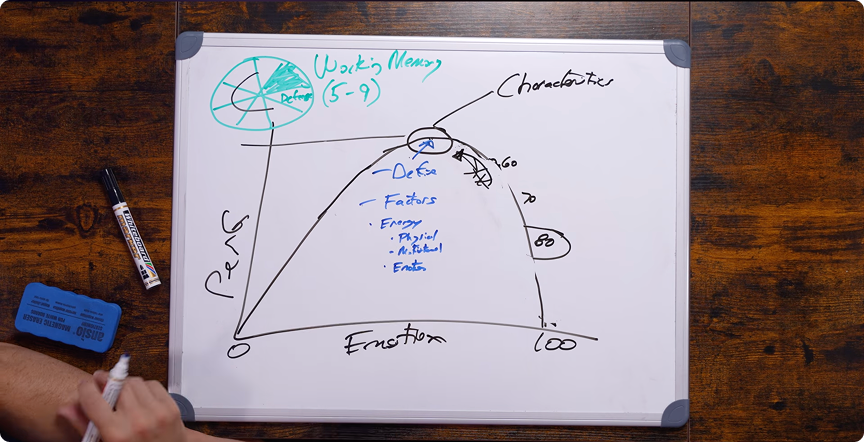 Working Memory
(5-9)
Define
Characteristics
- Define
- Factors
· Energy
· Physical
- Nutritional
· Emotion
60
70
80
Perf
0
Emotion
100
MAGNETIC ERASER